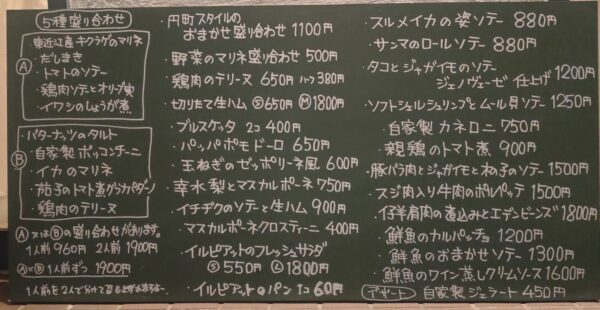 5種盛り合わせ
Ⓐ
東近江産キクラゲのマリネ
・だしまき
・トマトのソテー
・鶏肉ソテとオリーブ実
・イワシのしょうが煮
Ⓑ
・バターナッツのタルト
・自家製ボッコンチーニ
・イカのマリネ
・茄子のトマト煮グラパダーノ
・鶏肉のテリーヌ
Ⓐ又はⒷの盛り合わせがあります。
1人前960円 2人前1900円
Ⓐ+Ⓑ 1人前ずつ 1900円
1人前を2人で分けて
・円町スタイルの
おまかせ盛り合わせ 1100円
・野菜のマリネ盛り合わせ 500円
・鶏肉のテリーヌ 650円 ハーフ380円
・切りたて生ハム Ⓢ650円 Ⓜ1800円
・ブルスケッタ 2コ 400円
・パッパポモドーロ 650円
・玉ねぎのゼッポリーネ風 600円
・幸水梨とマスカルポーネ 750円
・イチヂクのソテーと生ハム 900円
・マスカルポーネクロスティーニ 400円
・イルピアットのフレッシュサラダ
Ⓢ550円 Ⓛ1800円
・イルピアットのパン 1コ 60円
・スルメイカの姿ソテー 880円
・サンマのロールソテー 880円
・タコとジャガイモのソテー
ジェノヴェーゼ仕上げ 1200円
・ソフトシェルシュリンプとムール貝ソテー 1250円
・自家製カネロニ 750円
・親鶏のトマト煮 900円
・豚バラ肉とジャガイモと茄子のソテー 1500円
・スジ入り牛肉のポルペッテ 1500円
・仔羊肩肉の煮込みとエデンビーンズ 1800円
・鮮魚のカルパッチョ 1200円
・鮮魚のおまかせソテー 1300円
・鮮魚のワイン蒸しクリームソース 1600円
デザート 自家製ジェラート 450円